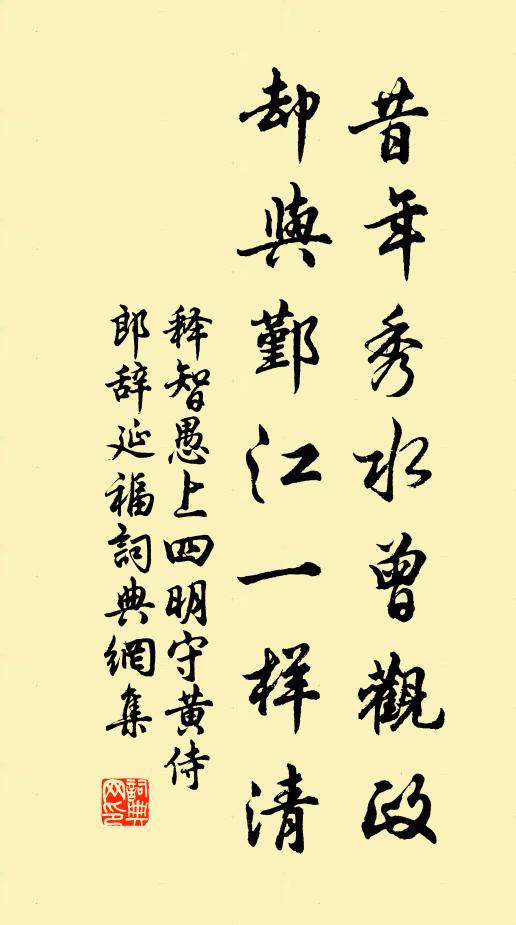 昔年秀水曾觀政
却與鄞江一样清
释智愚上四明守黄侍
郎辞延福詞典網集
詞典网印